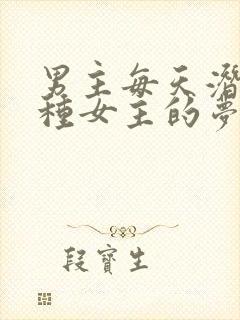 男主每天潛
種女主的夢
段寶生